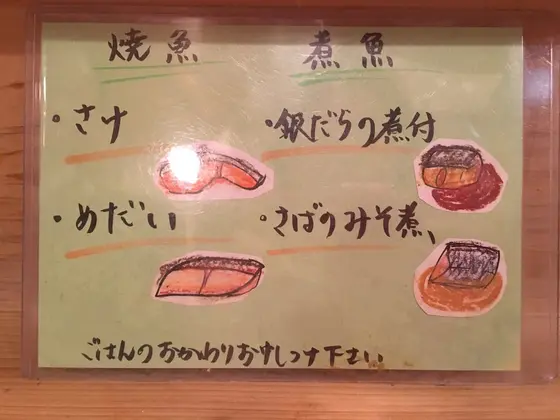 焼魚
・さけ
・めだい
煮魚
・銀だらの煮付
・さばのみそ煮
ごはんのおかわりおけしつけ下さい